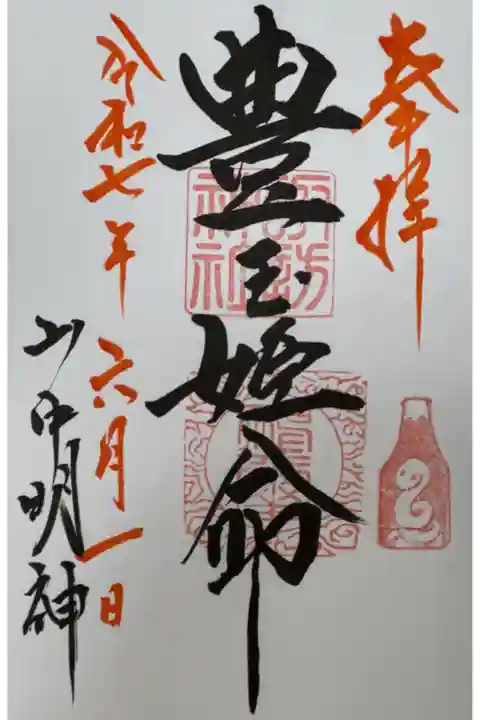 奉拝
豊玉姫命
諏訪神社
令和七年
六月一日
山中明神